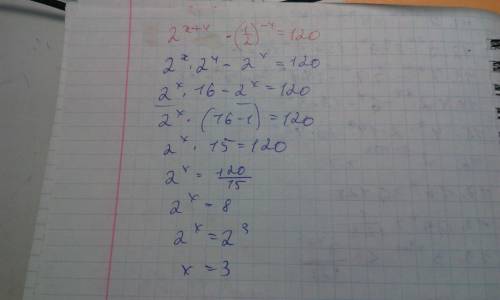 2^{x+4} - (1/2)^{-x} = 120
2^x · 2^4 - 2^x = 120
2^x · 16 - 2^x = 120
2^x · (16-1) = 120
2^x · 15 = 120
2^x = 120/15
2^x = 8
2^x = 2^3
x = 3